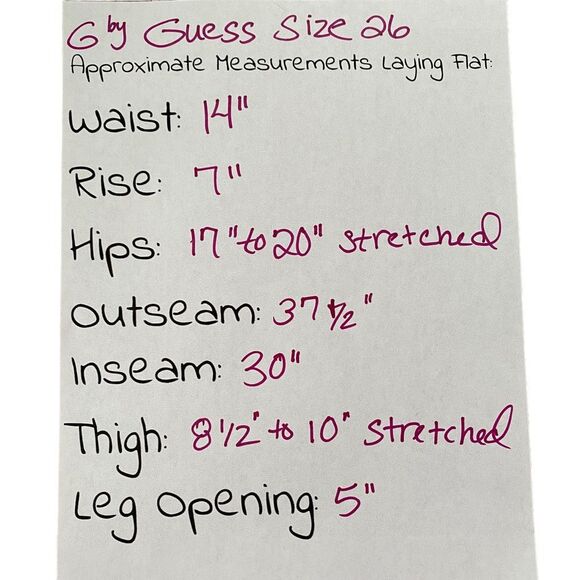 G by Guess Size 26
Approximate Measurements Laying Flat:
Waist: 14"
Rise: 7"
Hips: 17" to 20" stretched
Outseam: 37 1/2"
Inseam: 30"
Thigh: 8 1/2" to 10" stretched
Leg Opening: 5"